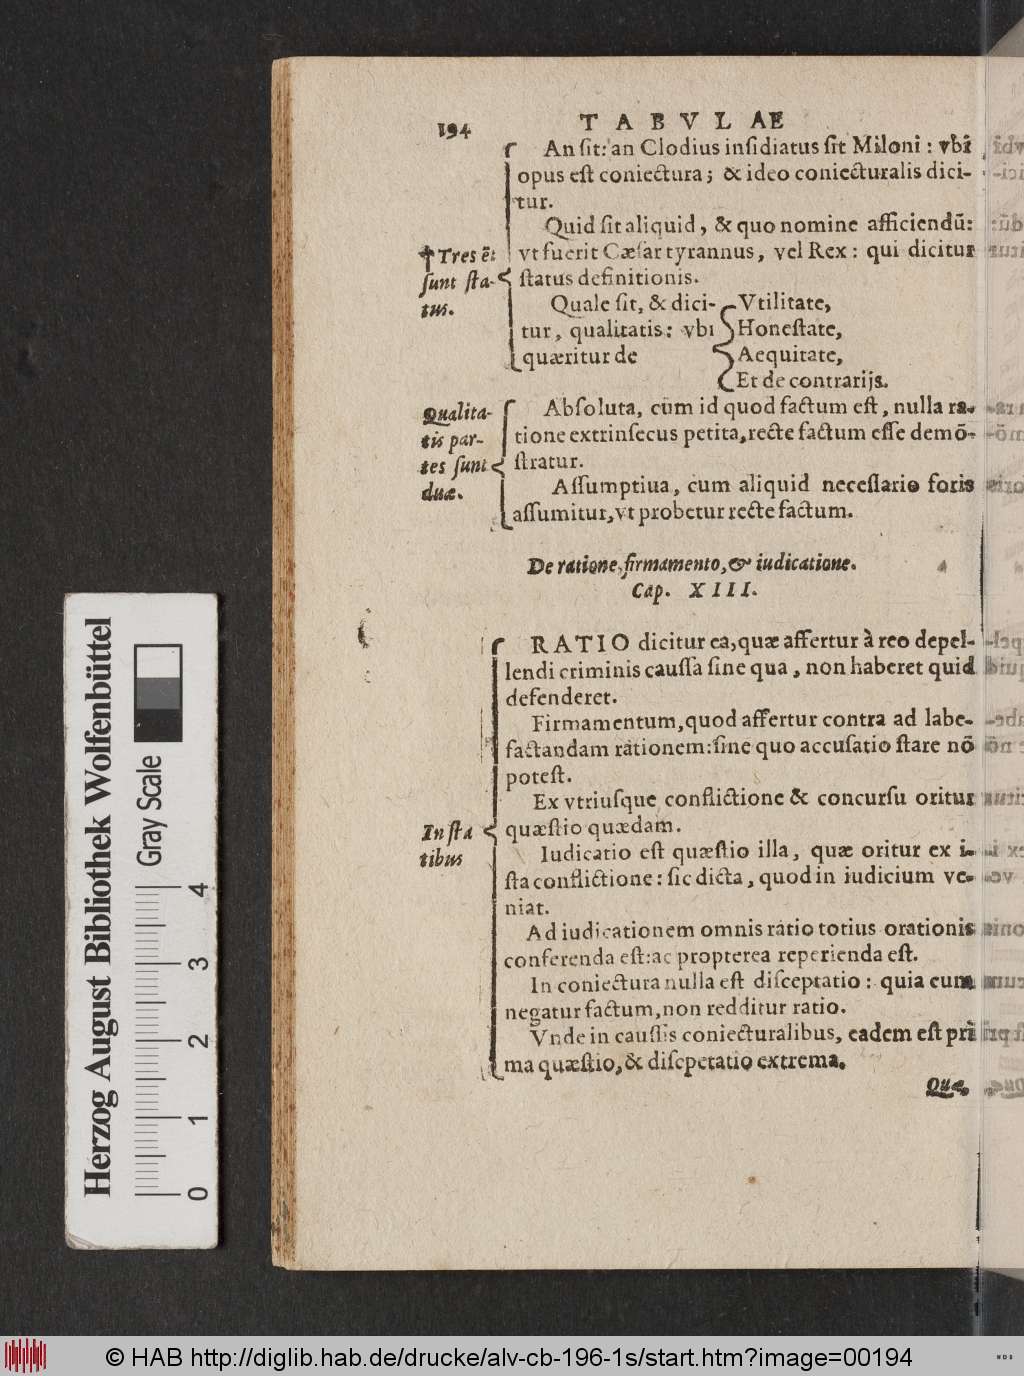 194
TABVLAE
An sit: an Clodius insidiatus sit Miloni: vbi
opus est coniectura; & ideo coniecturalis dici-
tur.
Quid sit aliquid, & quo nomine afficiendū:
†Tres ēt
vt fuerit Cæsar tyrannus, vel Rex: qui dicitur
sunt sta-
status definitionis.
tus.
Quale sit, & dici-
tur, qualitatis: vbi
quæritur de
Vtilitate,
Honestate,
Aequitate,
Et de contrarijs.
Qualita-
tis par-
tes sunt
duæ.
Absoluta, cùm id quod factum est, nulla ra-
tione extrinsecus petita, recte factum esse demō-
stratur.
Assumptiua, cum aliquid necessario foris
assumitur, vt probetur recte factum.
De ratione, firmamento, & iudicatione.
Cap. XIII.
RATIO dicitur ea, quæ affertur à reo depel-
lendi criminis caussa sine qua, non haberet quid
defenderet.
Firmamentum, quod affertur contra ad labe-
factandam rationem: sine quo accusatio stare nō
potest.
Ex vtriusque conflictione & concursu oritur
In sta
tibus
quæstio quædam.
Iudicatio est quæstio illa, quæ oritur ex i-
sta conflictione: sic dicta, quod in iudicium ve-
niat.
Ad iudicationem omnis ratio totius orationis
conferenda est: ac propterea reperienda est.
In coniectura nulla est disceptatio: quia cum
negatur factum, non redditur ratio.
Vnde in caussis coniecturalibus, eadem est pri
ma quæstio, & discpetatio extrema.
Quæ,
Herzog August Bibliothek Wolfenbüttel
Gray Scale
0 1 2 3 4
© HAB http://diglib.hab.de/drucke/alv-cb-196-1s/start.htm?image=00194